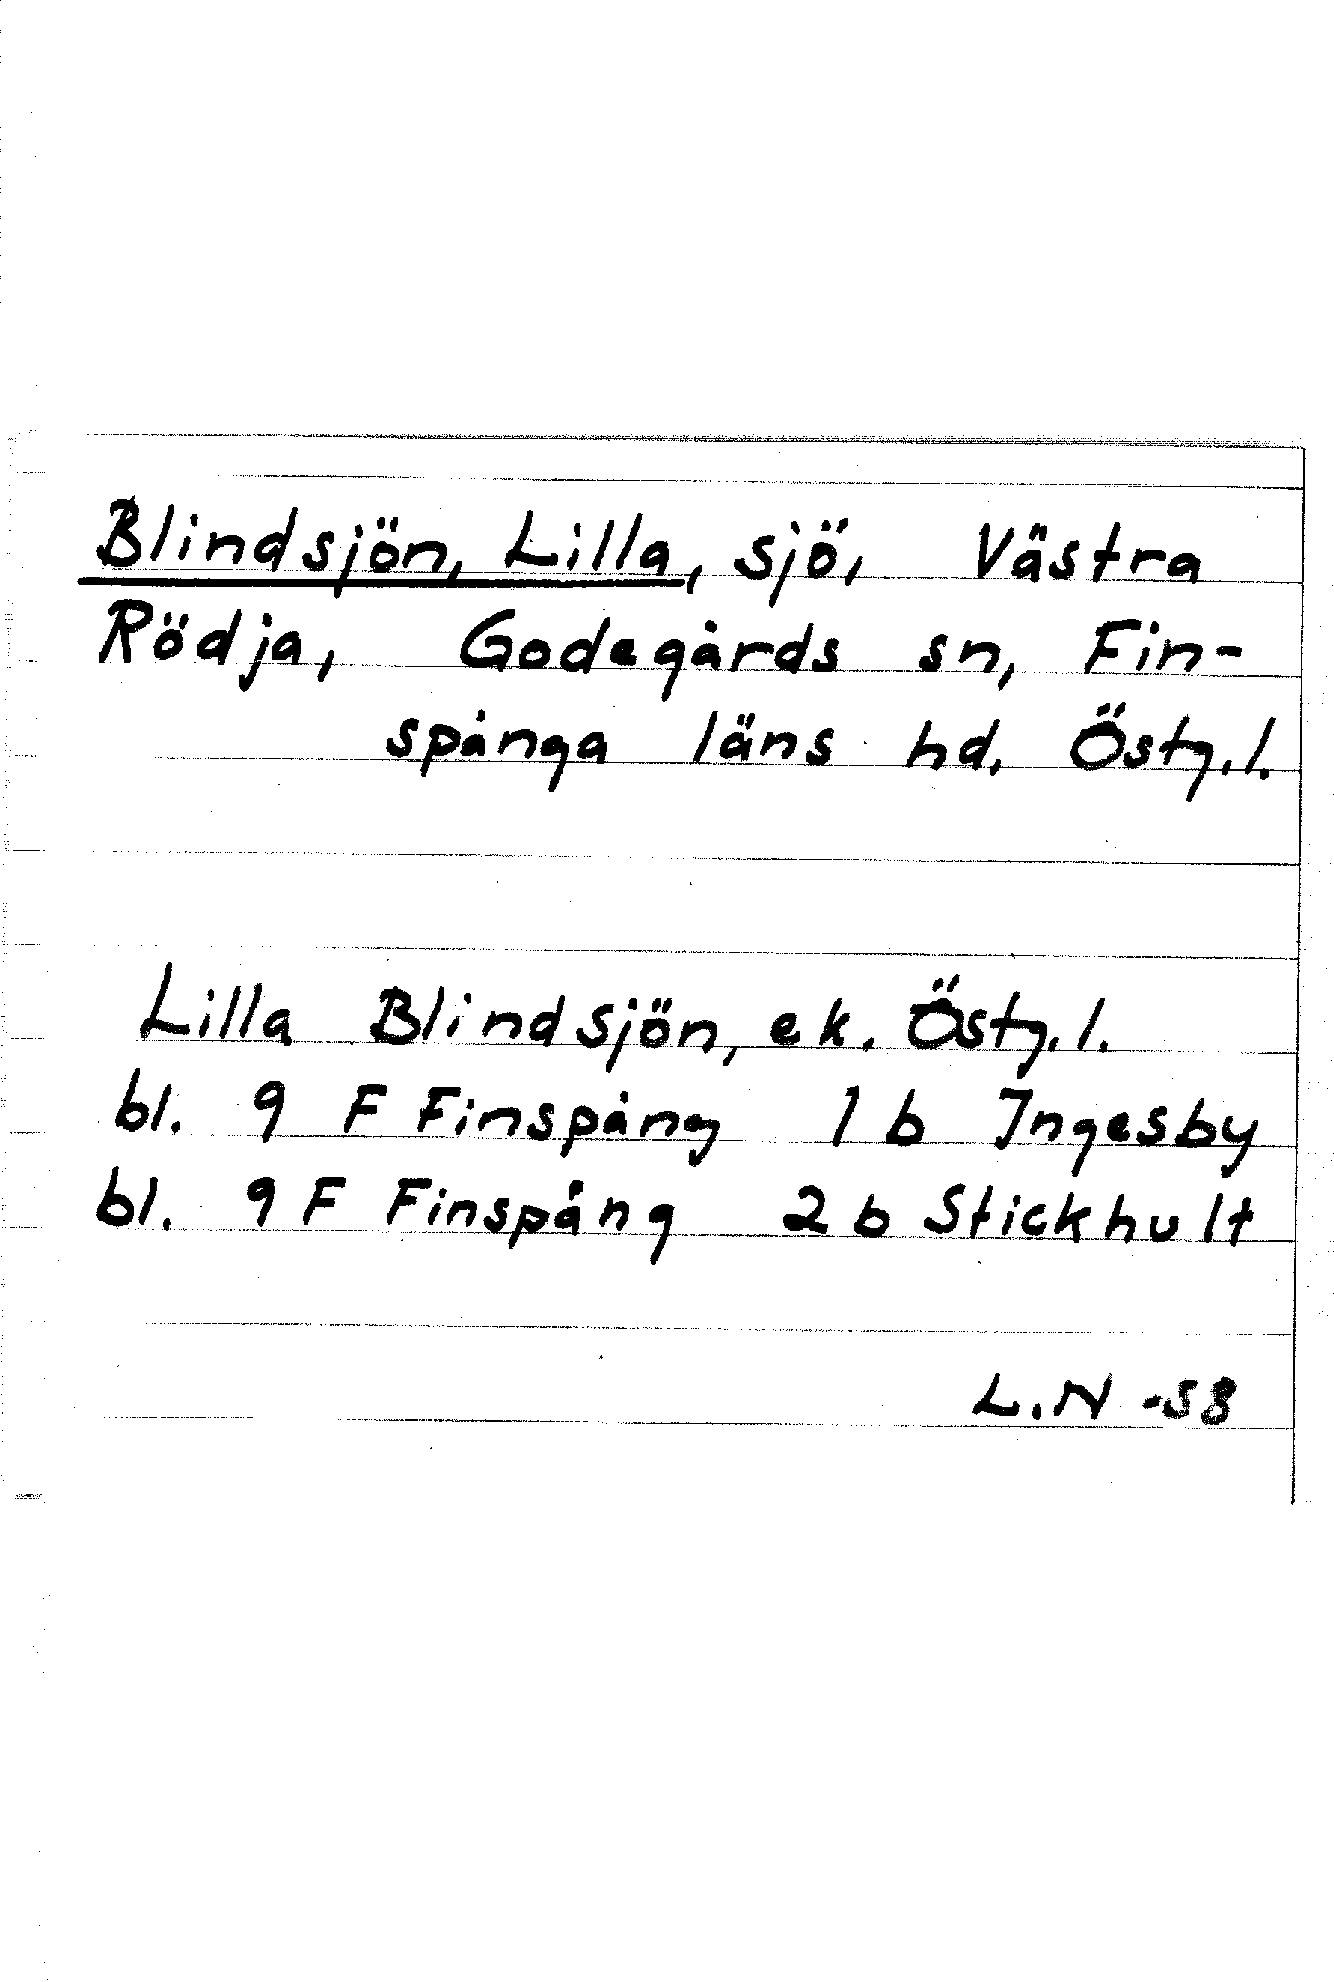 Blindsjön, Lilla, sjö, Västra
Rödja, Godegårds sn, Fin-
spånga läns hd, Östg.l.
Lilla Blindsjön, ek. Östg.l.
bl. 9 F Finspång 1 b Ingesby
bl. 9 F Finspång 2 b Stickhult
L.N -58